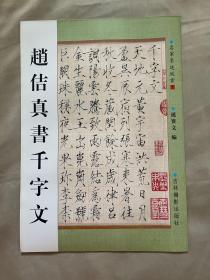 趙佶真書千字文
千字文
天地元黃宇宙洪荒日月
盈昃辰宿列張寒來暑往
秋收冬藏閏餘成歲律呂
調陽雲騰致雨露結為霜
金生麗水玉出崑岡劍號
巨闕珠稱夜光果珍李柰
編
吉林攝影出版社